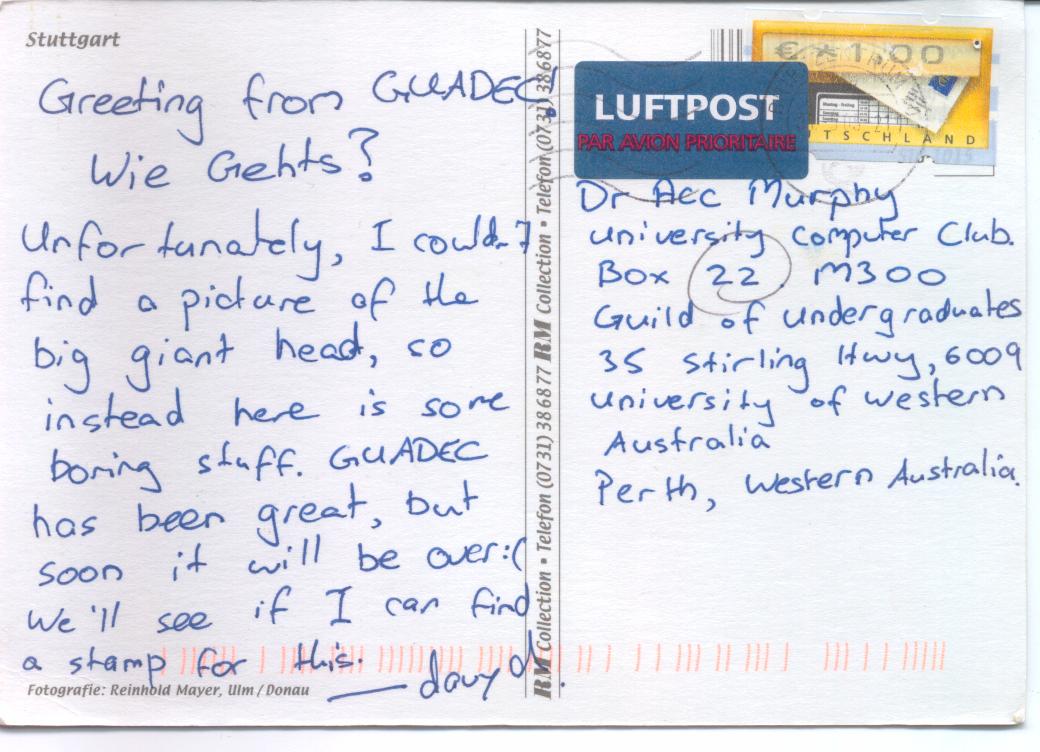 Stuttgart
Greeting from GUADEC!
Wie Gehts?
Unfortunately, I couldn't
find a picture of the
big giant head, so
instead here is some
boring stuff. GUADEC
has been great, but
soon it will be over:(
We'll see if I can find
a stamp for this.
— davyd.
Fotografie: Reinhold Mayer, Ulm/Donau
RM Collection • Telefon (0731) 386877 RM Collection • Telefon (0731) 386877
€*1,00
DEUTSCHLAND
LUFTPOST
PAR AVION PRIORITAIRE
Dr Acc Murphy
University Computer Club.
Box 22. M300
Guild of Undergraduates
35 Stirling Hwy, 6009
University of Western
Australia
Perth, Western Australia.